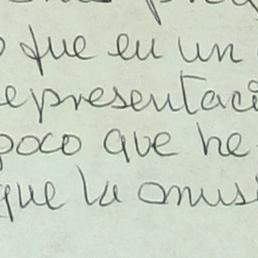 que en un
representaci
poco que he
que la musi